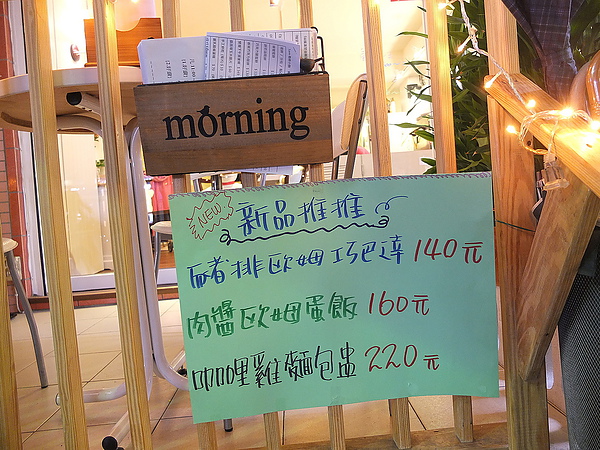 morning
NEW 新品推推
厚豬排歐姆巧巴達 140元
肉醬歐姆蛋飯 160元
咖哩雞麵包盅 220元